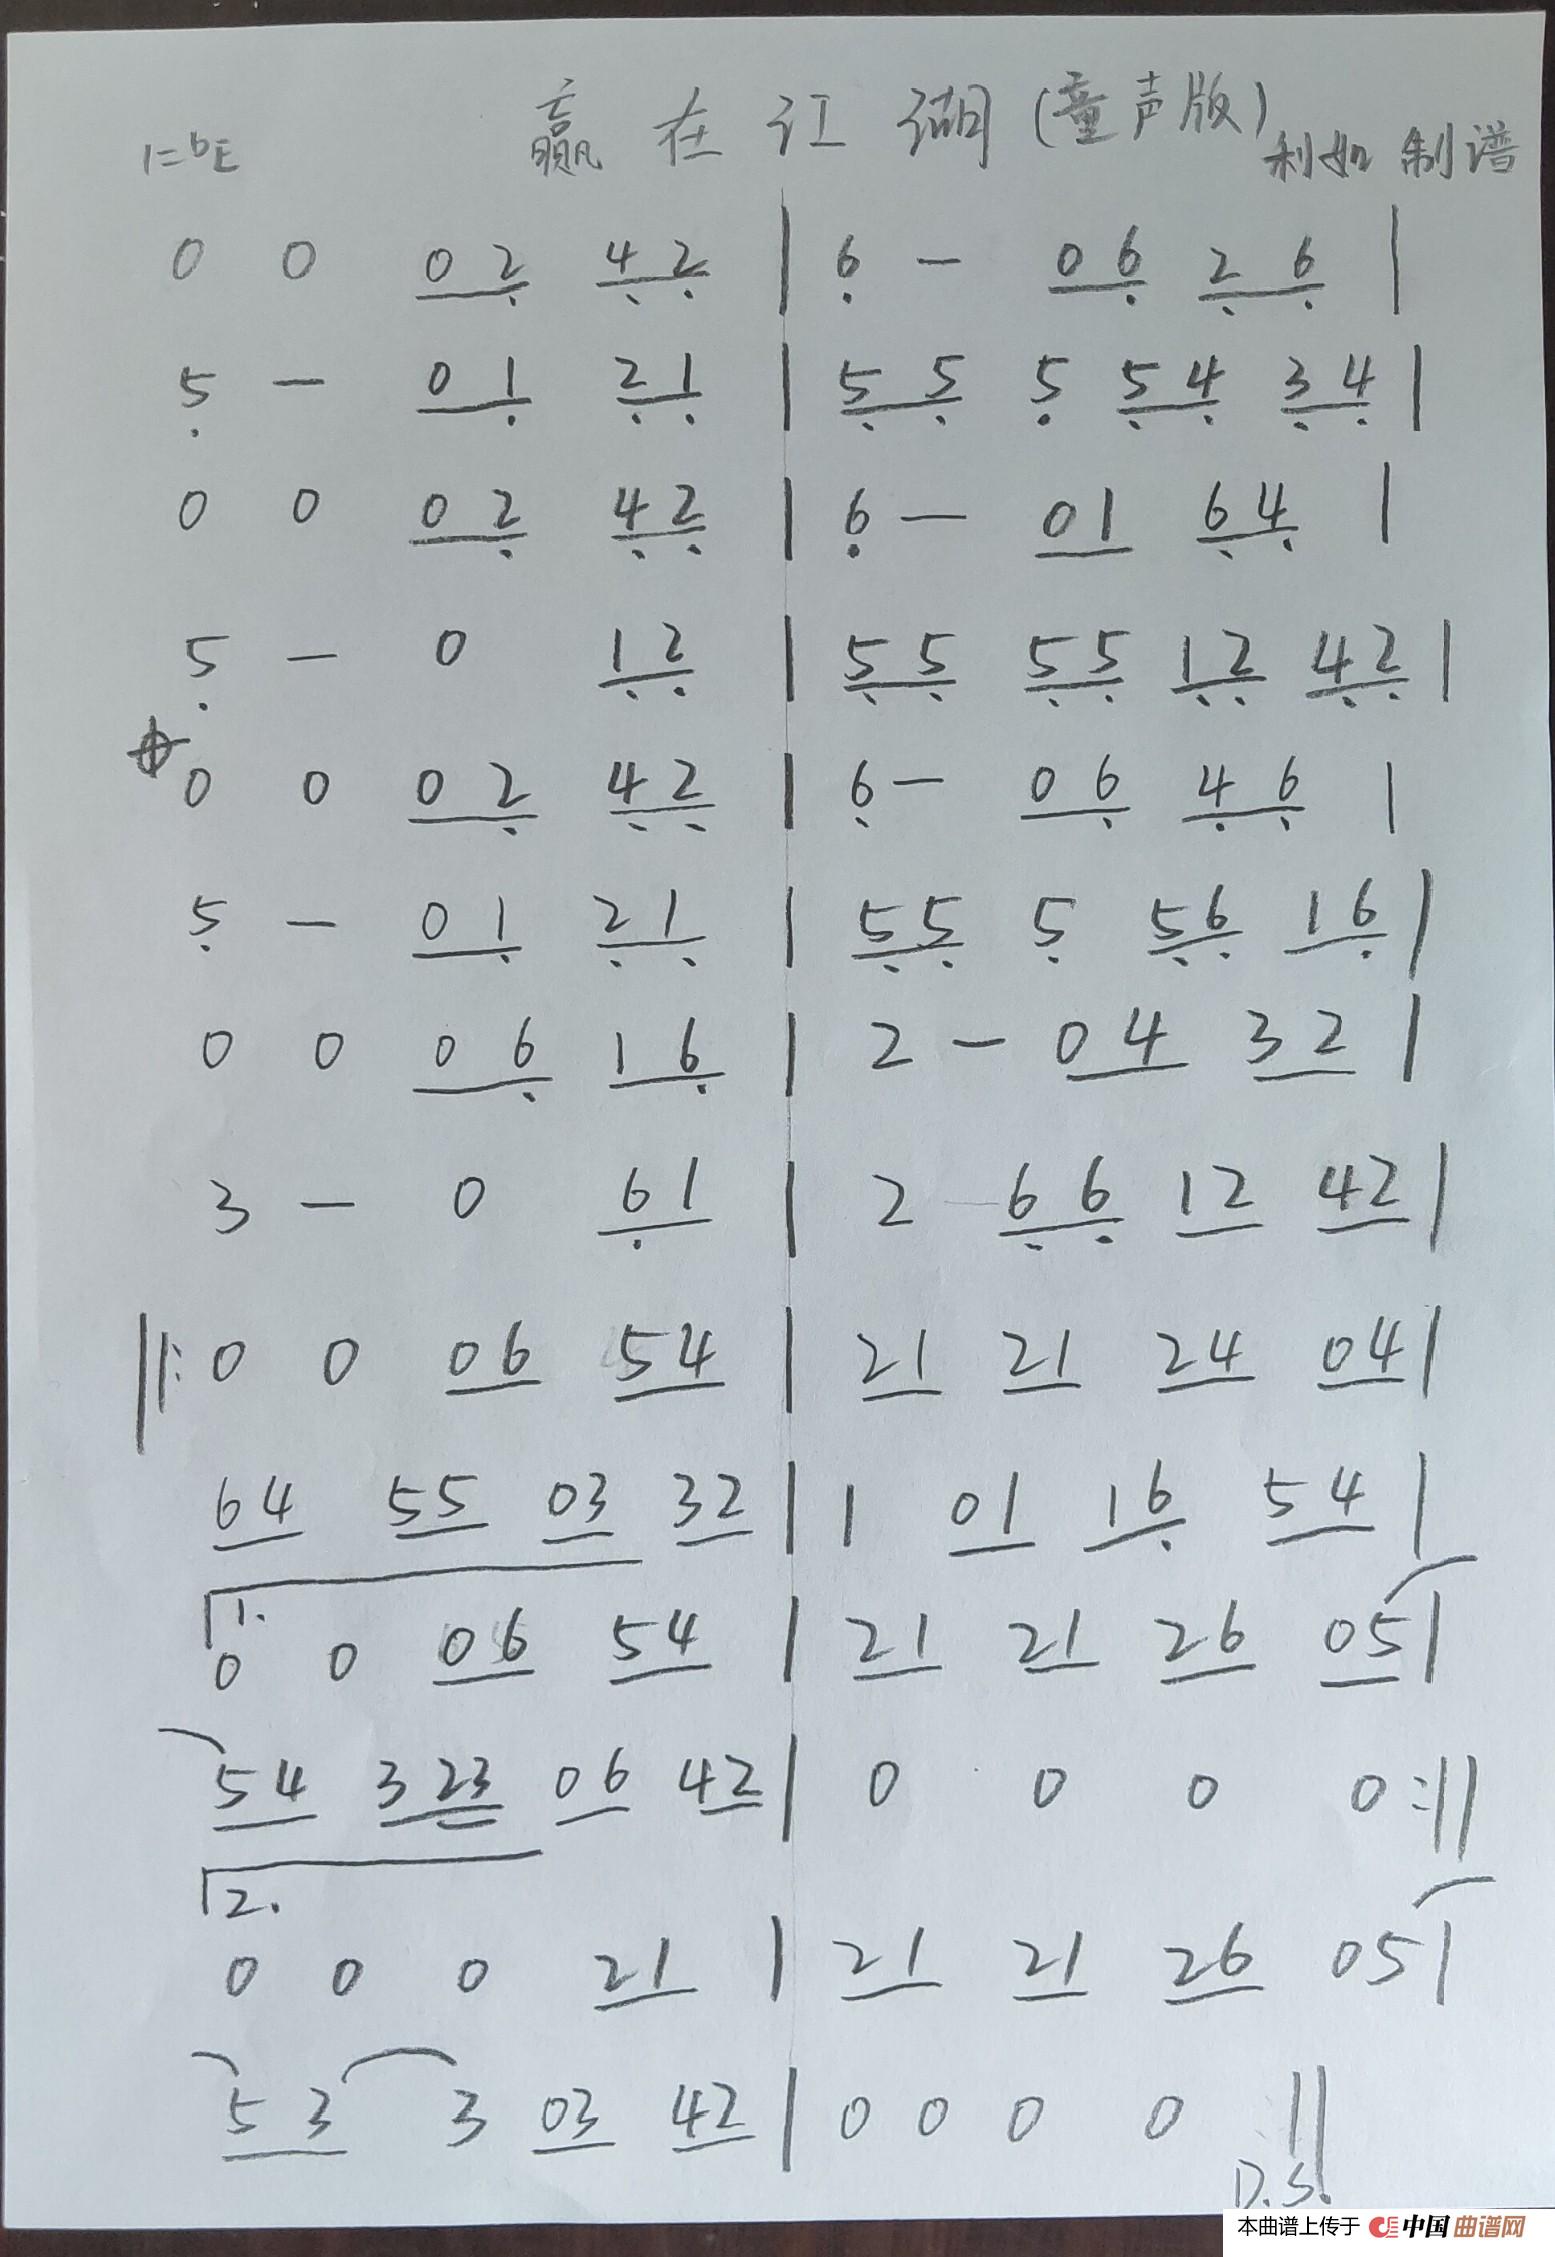 1=bE 赢在江湖(童声版) 利如 制谱
0 0 02 42 | 6 - 06 26 |
5 - 01 21 | 55 5 54 34 |
0 0 02 42 | 6 - 01 64 |
5 - 0 12 | 55 55 12 42 |
0 0 02 42 | 6 - 06 46 |
5 - 01 21 | 55 5 56 16 |
0 0 06 16 | 2 - 04 32 |
3 - 0 61 | 2 66 12 42 |
‖: 0 0 06 54 | 21 21 24 04 |
64 55 03 32 | 1 01 16 54 |
1.
0 0 06 54 | 21 21 26 05 |
54 323 06 42 | 0 0 0 0 :‖
2.
0 0 0 21 | 21 21 26 05 |
53 3 03 42 | 0 0 0 0 ‖
D.S.
本曲谱上传于 中国曲谱网